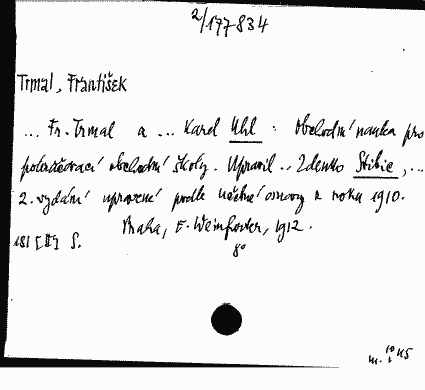 2/177834
Trmal, František
... Fr. Trmal a ... Karel Uhl : Obchodní nauka pro
pokračovací obchodní školy. Upravil .. Zdenko Stibic, ...
2. vydání upravené podle učebné osnovy z roku 1910.
Praha, E. Weinfurter, 1912.
181 [II] S. 8°